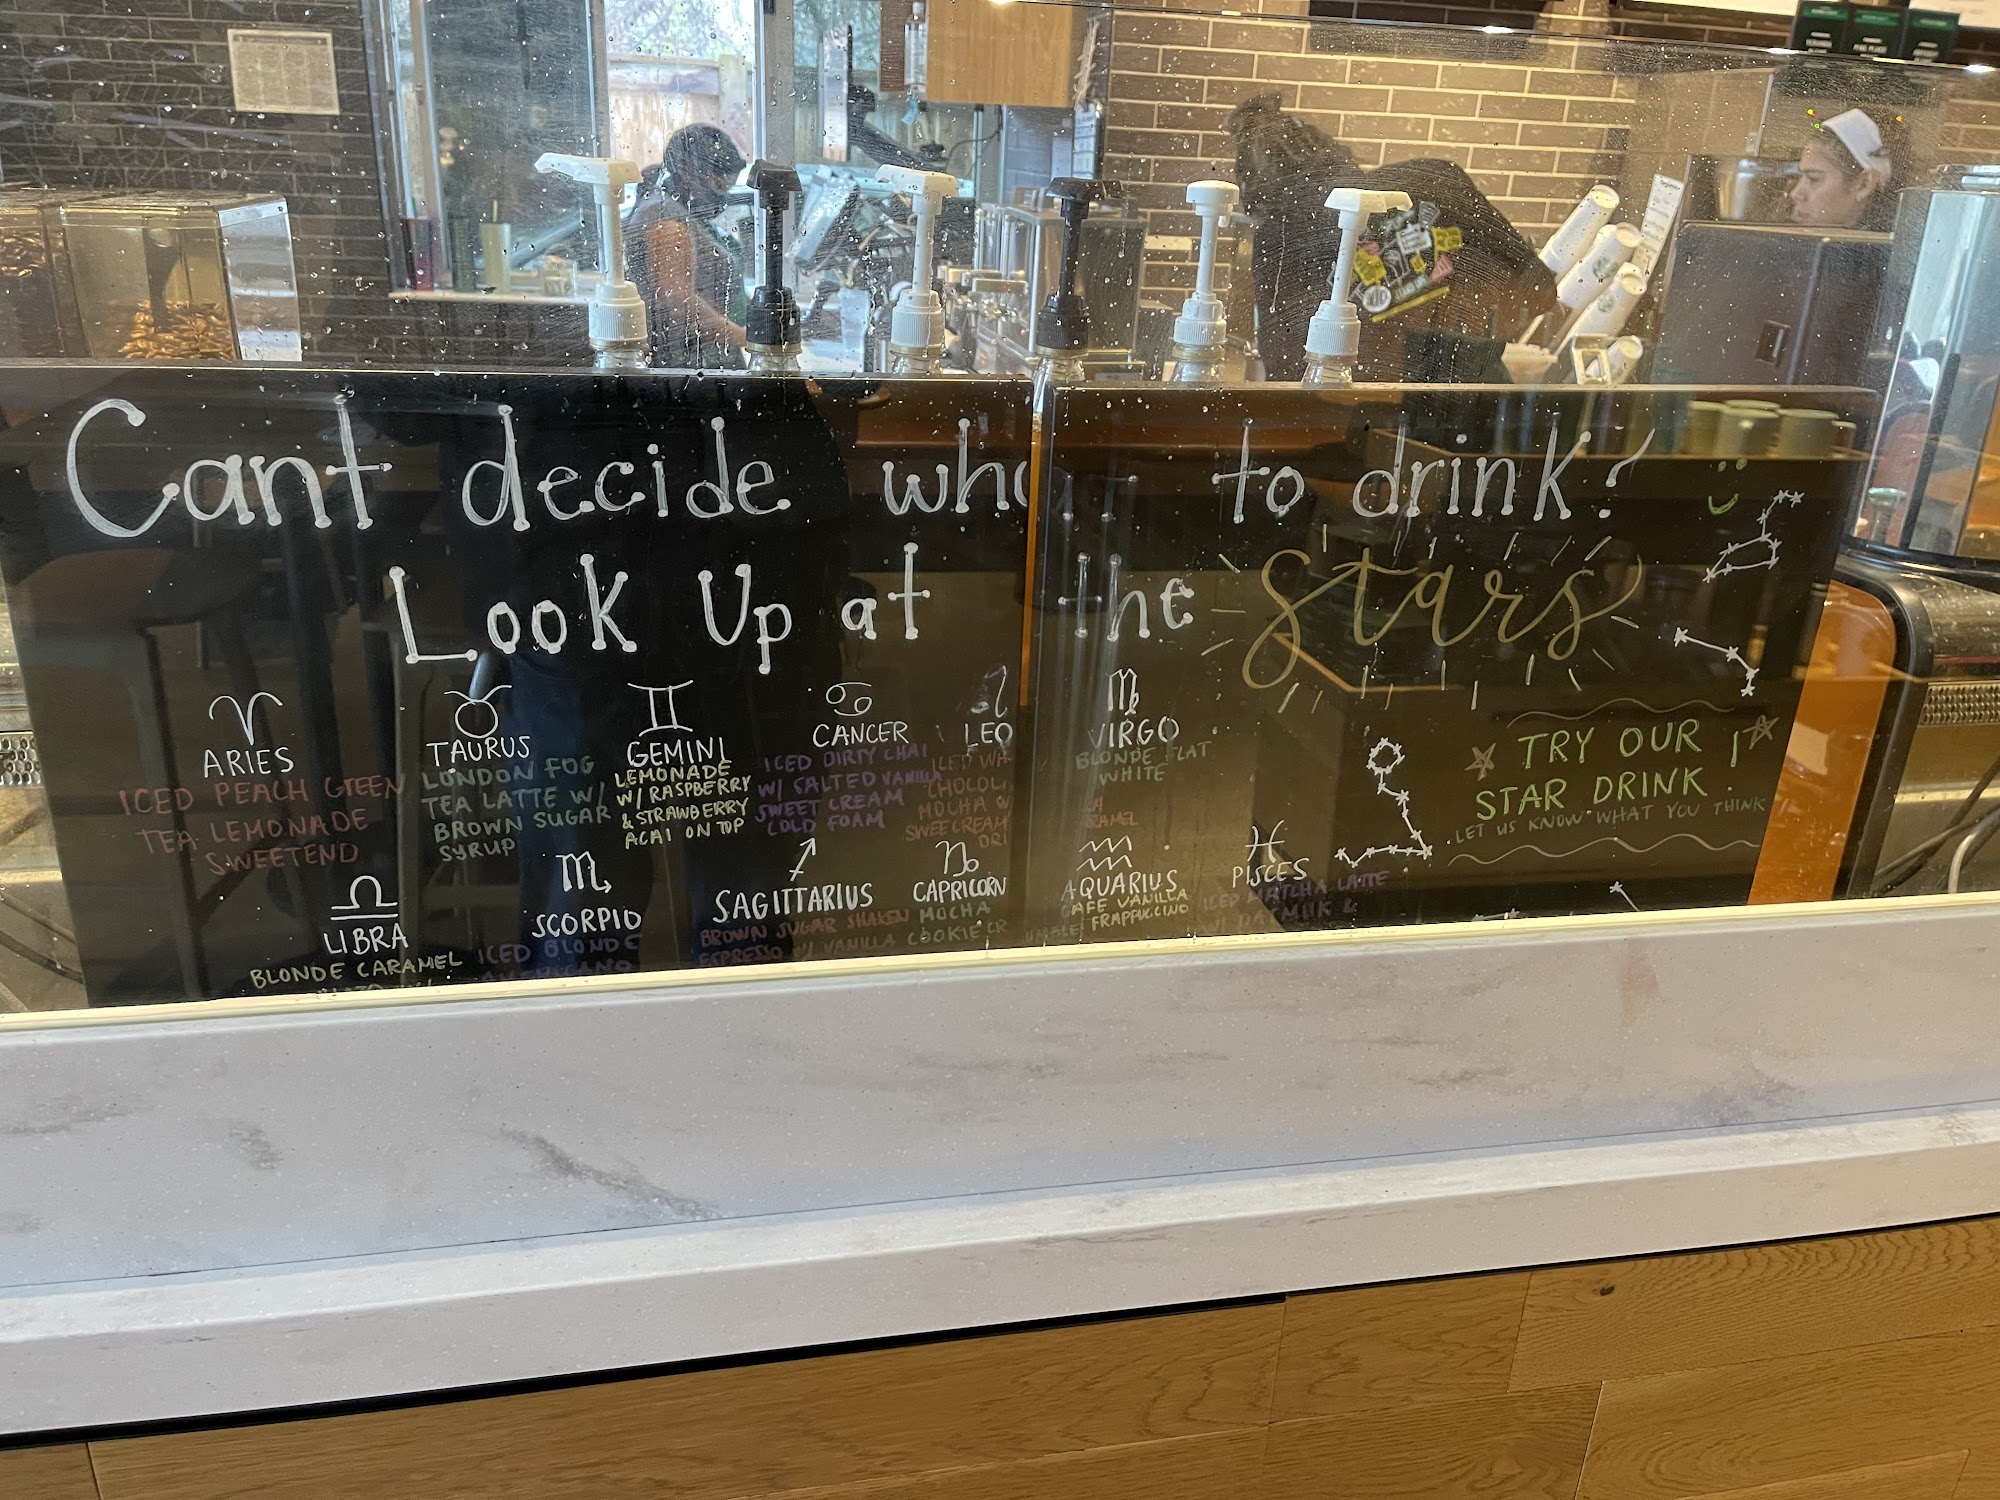 Cant decide to drink?
Look Up at the Stars
ARIES
ICED PEACH GREEN
TEA LEMONADE
SWEETEND
TAURUS
LONDON FOG
TEA LATTE W/
BROWN SUGAR
SYRUP
GEMINI
LEMONADE
W/ RASPBERRY
& STRAWBERRY
ACAI ON TOP
CANCER
ICED DIRTY CHAI
W/ SALTED VANILLA
SWEET CREAM
COLD FOAM
LEO
MOCHA
VIRGO
BLONDE FLAT
WHITE
LIBRA
BLONDE CARAMEL
SCORPIO
ICED BLONDE
AMERICANO
SAGITTARIUS
BROWN SUGAR SHAKEN
ESPRESSO W/ VANILLA
CAPRICORN
MOCHA
COOKIE
AQUARIUS
VANILLA
FRAPPUCCINO
PISCES
ICED MATCHA LATTE
TRY OUR
STAR DRINK
LET US KNOW WHAT YOU THINK